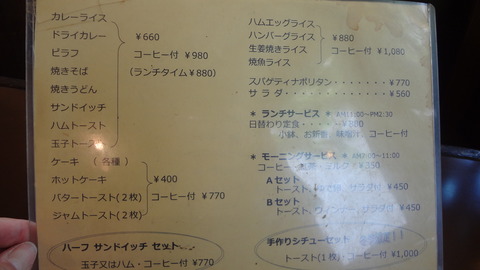 カレーライス
ドライカレー
ピラフ
焼きそば
焼きうどん
サンドイッチ
ハムトースト
玉子トースト
¥660
コーヒー付 ¥980
(ランチタイム¥880)
ケーキ (各種)
ホットケーキ
バタートースト(2枚)
ジャムトースト(2枚)
¥400
コーヒー付 ¥770
ハーフ サンドイッチ セット
玉子又はハム・コーヒー付 ¥770
ハムエッグライス
ハンバーグライス
生姜焼きライス
焼魚ライス
¥880
コーヒー付 ¥1,080
スパゲティナポリタン・・・・・・・¥770
サラダ・・・・・・・・・・・・¥560
* ランチサービス * AM11:00~PM2:30
日替わり定食・・・・¥880
小鉢、お新香、味噌汁、コーヒー付
* モーニングサービス * ~11:00
コーヒー・紅茶・ミルク ¥350
Aセット
トースト、ゆで卵、サラダ付 ¥450
Bセット
トースト、サラダ付 ¥450
手作りシチューセット
トースト(1枚)・コーヒー付 ¥1,000